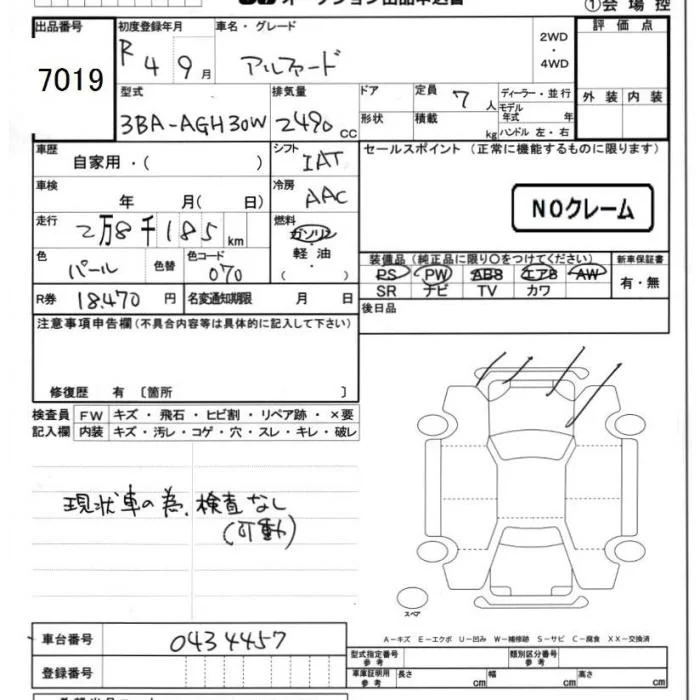 オークション出品申込書
①会場控
出品番号
7019
初度登録年月
R 4 9月
車名・グレード
アルファード
2WD
・
4WD
評価点
外装 内装
型式
3BA-AGH30W
排気量
2490 cc
ドア
形状
定員 7人
積載 kg
ディーラー・並行
モデル年式 年
ハンドル 左・右
車歴
自家用・( )
シフト
IAT
セールスポイント(正常に機能するものに限ります)
NOクレーム
車検
年 月( 日)
冷房
AAC
走行
2万8千185km
燃料
ガソリン
・
軽油
( ・ )
色
パール
色替
色コード
070
装備品(純正品に限り○をつけてください)
PS PW ABS エアB AW
SR ナビ TV カワ
新車保証書
有・無
R券 18.470 円
名変通知期限 月 日
後日品
注意事項申告欄(不具合内容等は具体的に記入して下さい)
修復歴 有 〔箇所 〕
検査員記入欄
FW キズ・飛石・ヒビ割・リペア跡・×要
内装 キズ・汚レ・コゲ・穴・スレ・キレ・破レ
現状車の為、検査なし
(可動)
スペア
A-キズ E-エクボ U-凹み W-補修跡 S-サビ C-腐食 XX-交換済
車台番号 0434457
登録番号
型式指定番号 参考
類別区分番号 参考
車庫証明用 参考
長さ cm 幅 cm 高さ cm